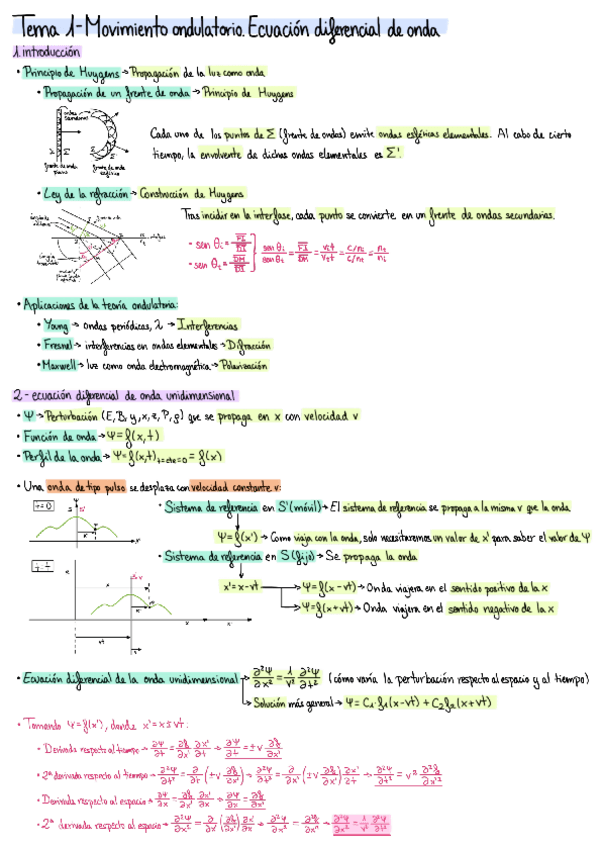 Tema 1-Movimiento ondulatorio. Ecuación diferencial de onda
1. introducción
• Principio de Huygens → Propagación de la luz como onda
• Propagación de un frente de onda → Principio de Huygens
ondas
Σ Σ'
frente de onda plano
frente de onda esférico
Cada uno de los puntos de Σ (frente de ondas) emite ondas esféricas elementales. Al cabo de cierto
tiempo, la envolvente de dichas ondas elementales es Σ'.
• Ley de la refracción → Construcción de Huygens
Tras incidir en la interfase, cada punto se convierte en un frente de ondas secundarias.
• Aplicaciones de la teoría ondulatoria:
• Young → ondas periódicas, λ → Interferencias
• Fresnel → interferencias en ondas elementales → Difracción
• Maxwell → luz como onda electromagnética → Polarización
2 - ecuación diferencial de onda unidimensional
• Ψ → Perturbación (E, B, y, x, z, P, ρ) que se propaga en x con velocidad v
• Función de onda → Ψ = f(x, t)
• Perfil de la onda → Ψ = f(x,t) t=cte=0 = f(x)
• Una onda de tipo pulso se desplaza con velocidad constante v:
t=0
• Sistema de referencia en S'(móvil) → El sistema de referencia se propaga a la misma v que la onda
Ψ = f(x') → Como viaja con la onda, solo necesitaremos un valor de x' para saber el valor de Ψ
• Sistema de referencia en S (fijo) → Se propaga la onda
x' = x - vt
Ψ = f(x - vt) → Onda viajera en el sentido positivo de la x
Ψ = f(x + vt) → Onda viajera en el sentido negativo de la x
vt
• Ecuación diferencial de la onda unidimensional → ∂²Ψ/∂x² = 1/v² ∂²Ψ/∂t² (cómo varía la perturbación respecto al espacio y al tiempo)
Solución más general → Ψ = C₁·f₁(x-vt) + C₂f₂(x+vt)
• Tomando Ψ = f(x'), donde x' = x ± vt:
• Derivada respecto al tiempo → ∂Ψ/∂t = ∂f/∂x' ∂x'/∂t → ∂Ψ/∂t = ±v ∂f/∂x'
• 2ª derivada respecto al tiempo → ∂²Ψ/∂t² = ∂/∂t (±v ∂f/∂x') → ∂²Ψ/∂t² = ∂/∂x' (±v ∂f/∂x') ∂x'/∂t → ∂²Ψ/∂t² = v² ∂²f/∂x'²
• Derivada respecto al espacio → ∂Ψ/∂x = ∂f/∂x' ∂x'/∂x → ∂Ψ/∂x = ∂f/∂x'